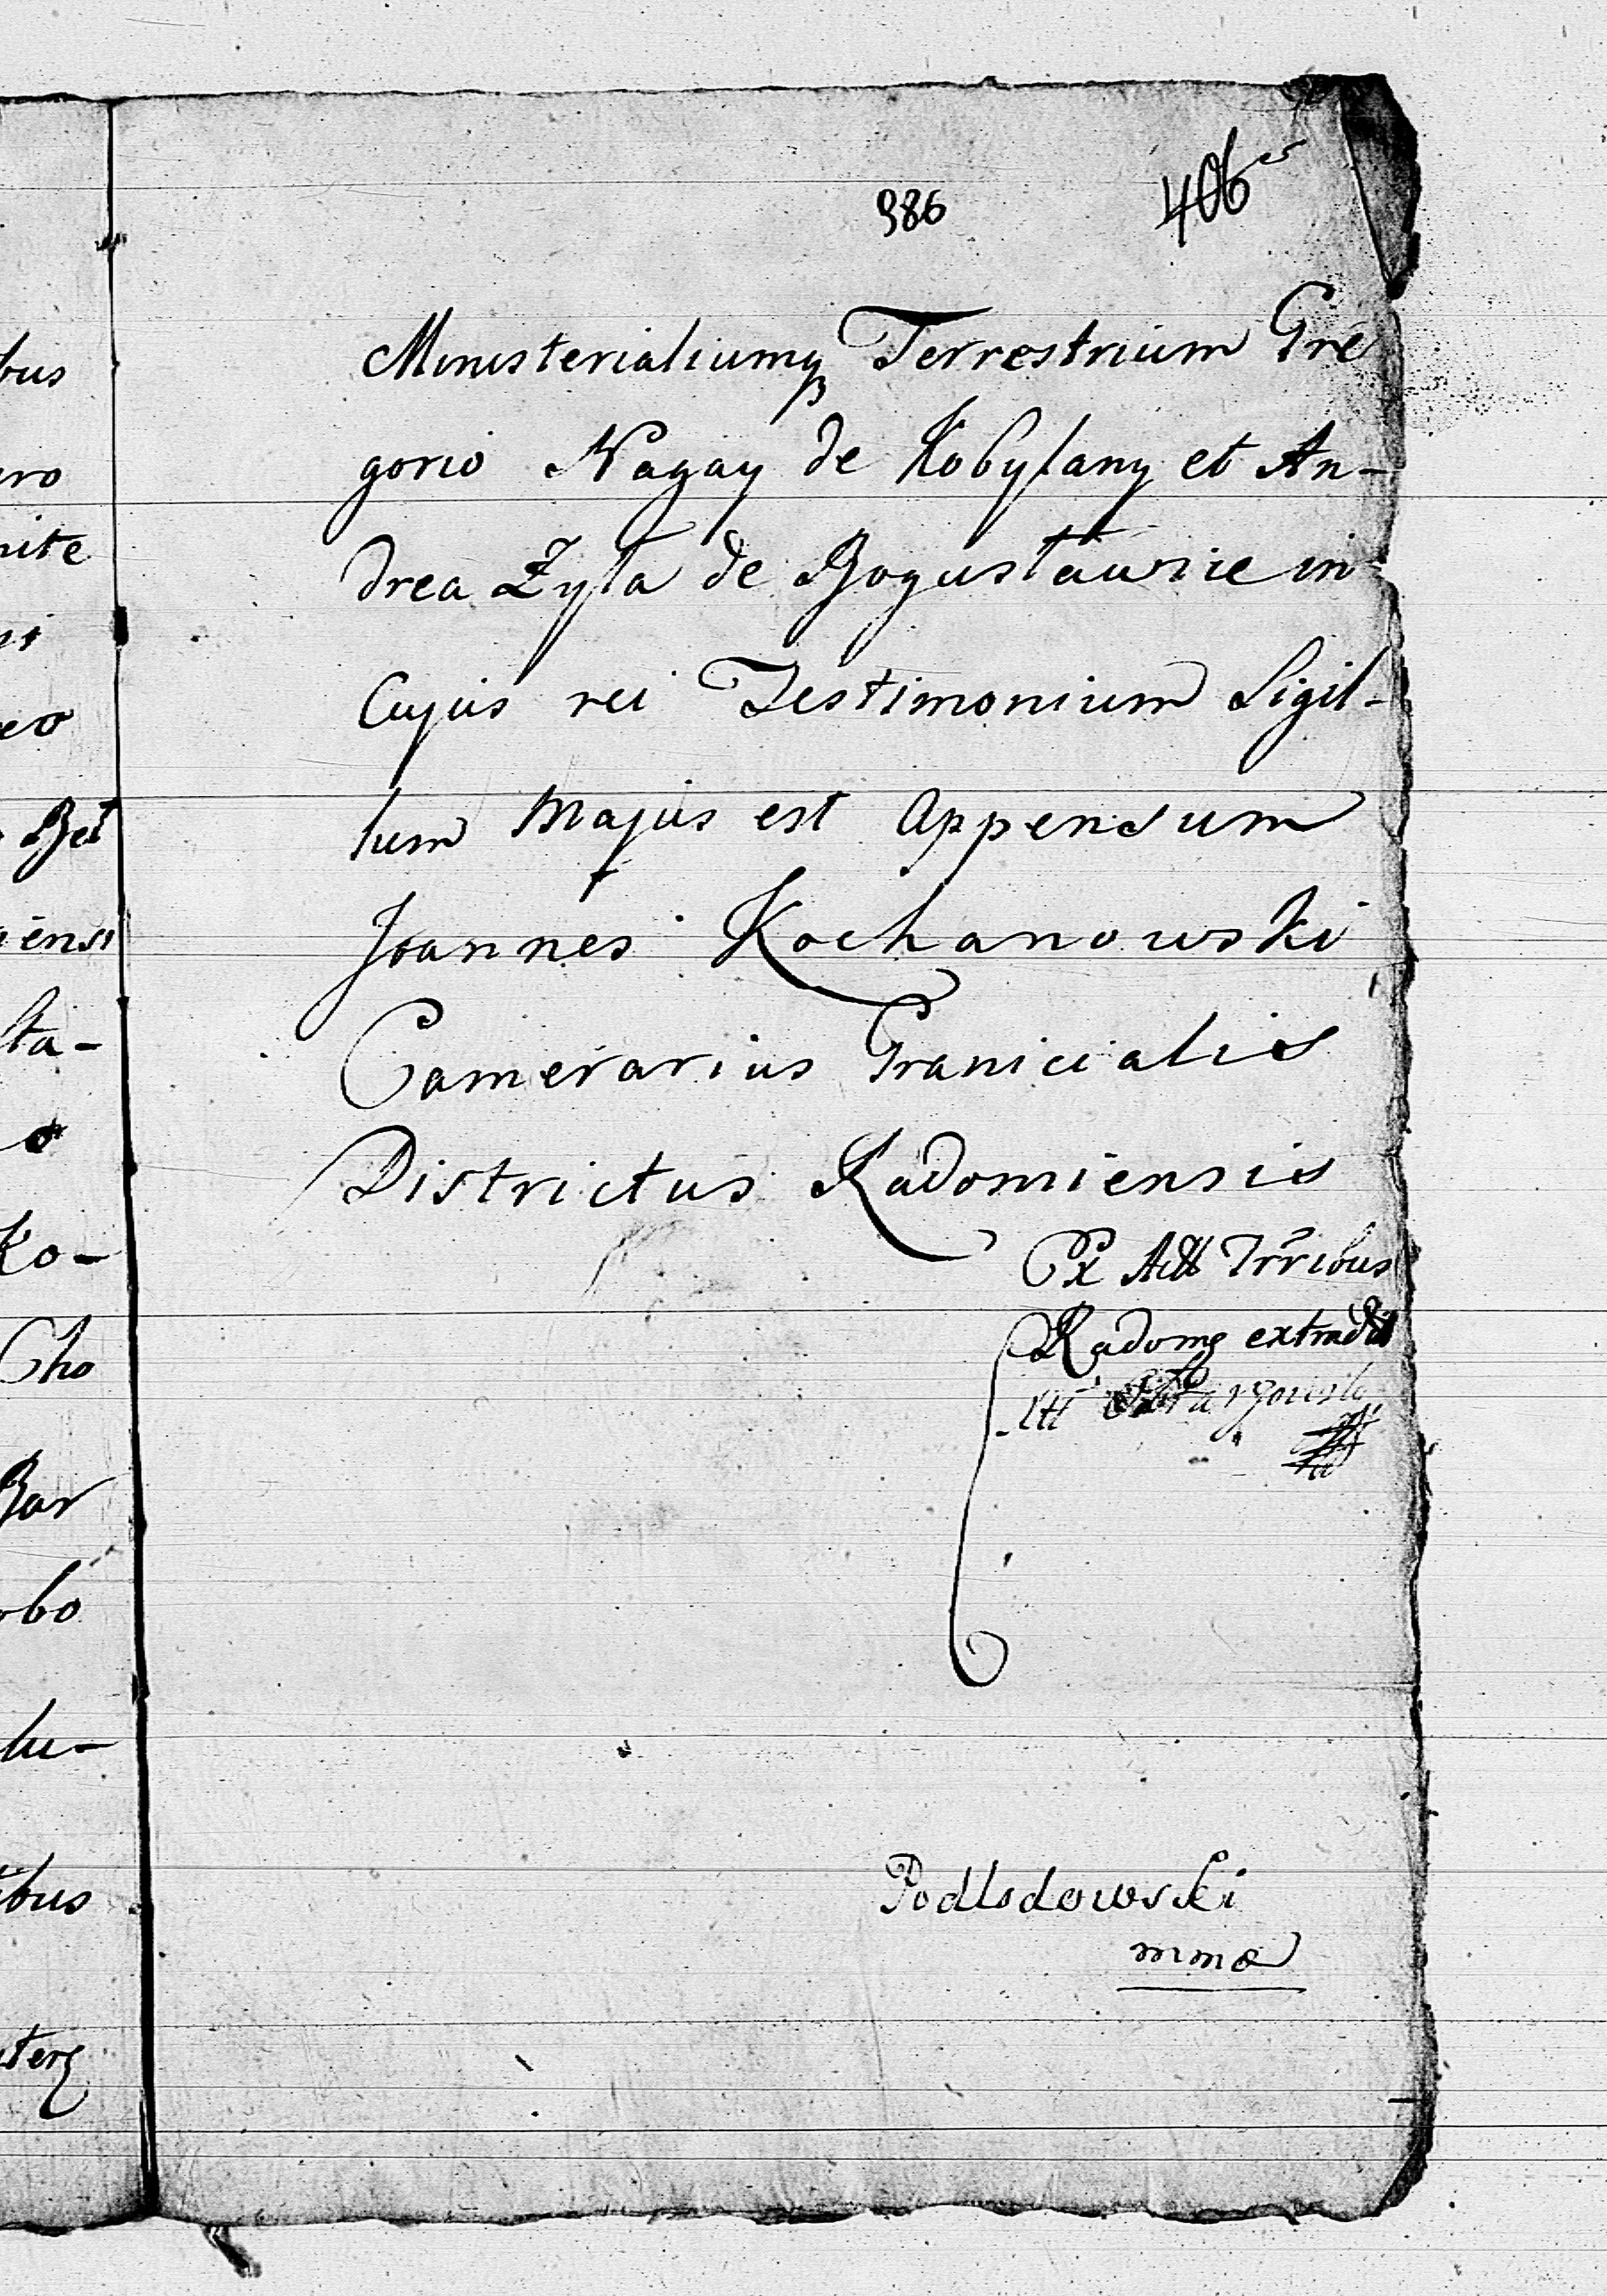 bus
ro
nite
ni
Bet
iensi
sta-
Ko-
Cho
Bar
rbo
lu-
ibus
986 406
Ministerialiumq Terrestrium Gre
gorio Nagay de Kobyłany et An-
drea Zyła de Bogusławice in
Cujus rei Testimonium Sigil-
lum Majus est Appensum
Joannes Kochanowski
Camerarius Granicialis
Districtus Radomiensis
Ex Actt Trribus
Radome extradit
Podlodowski
mmo